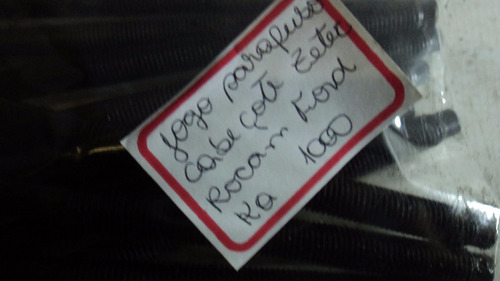 Jogo parafuso
Cabe çote Zetec
Rocam Ford
Ka 1000